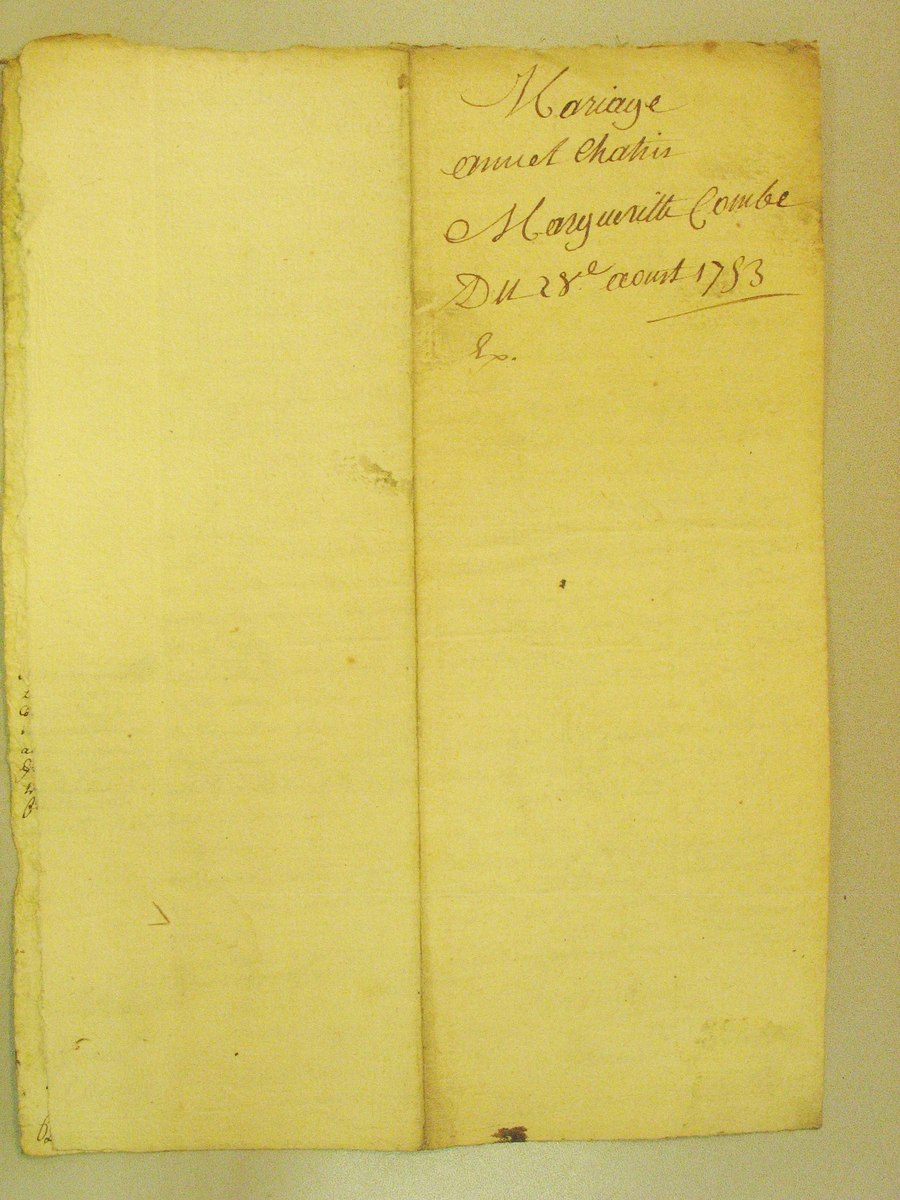 Mariage
annet Chatin
Margueritte Combe
Du 28e aoust 1753
Ex.